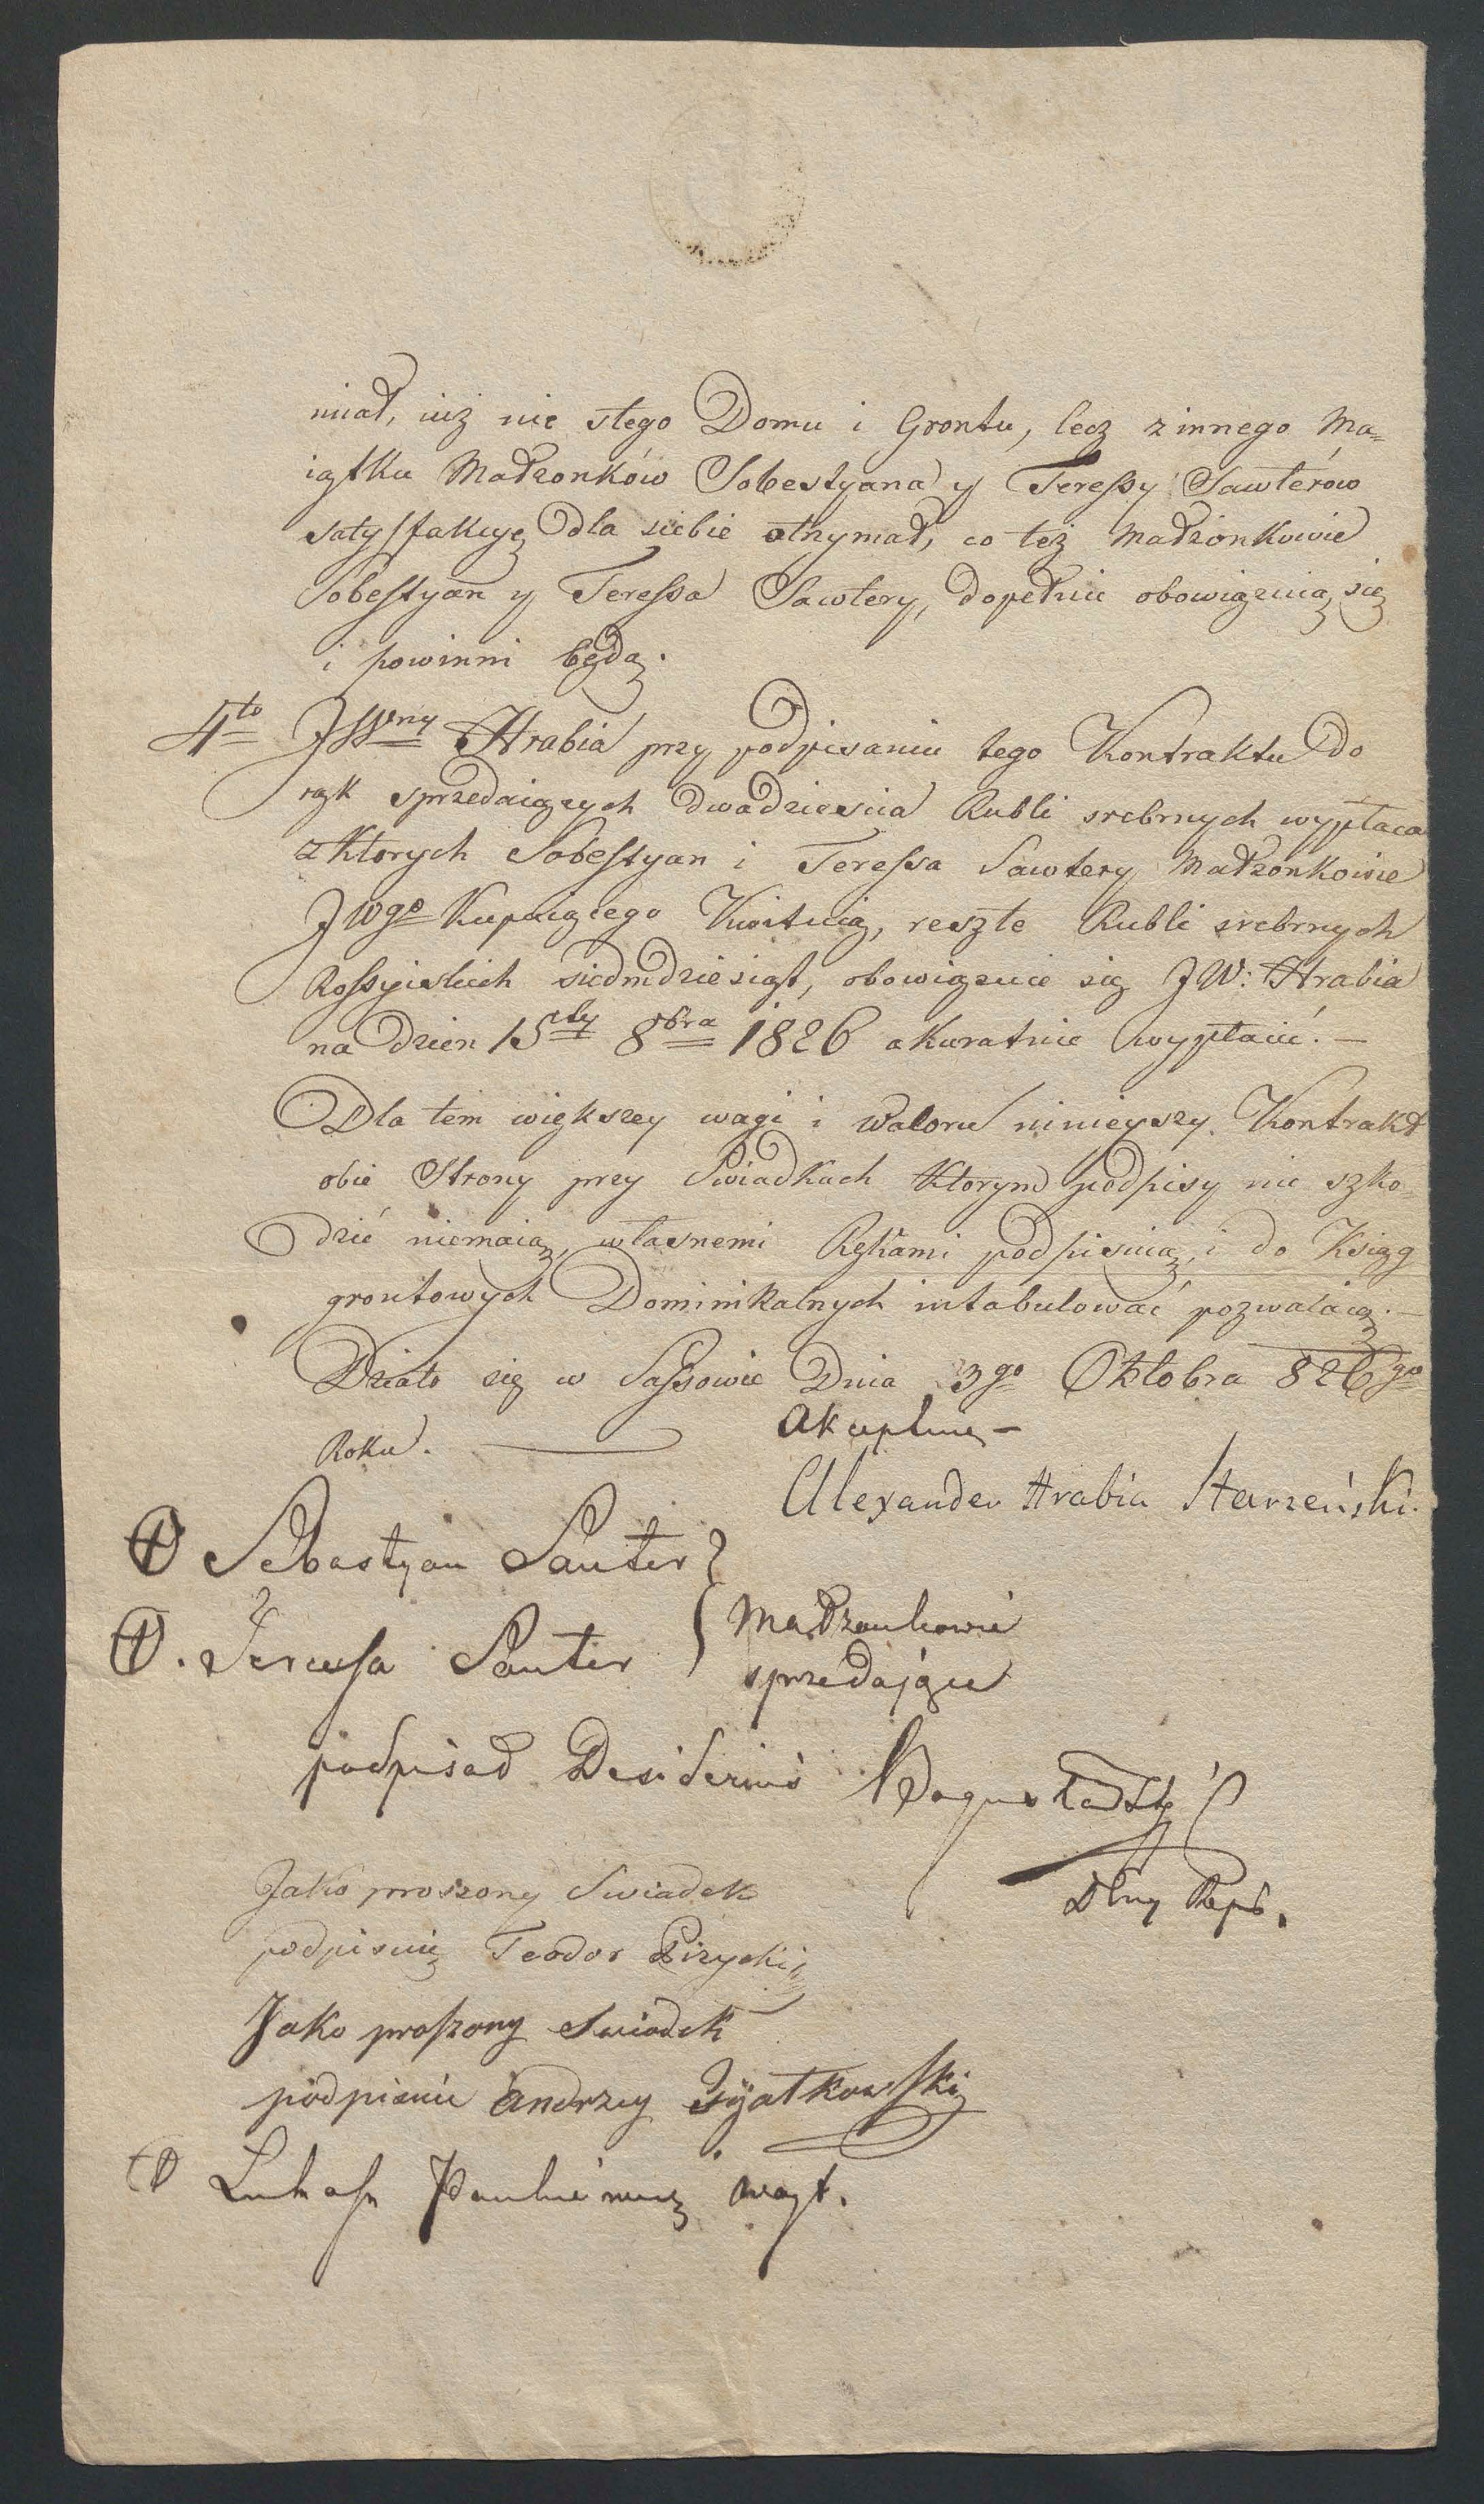 miał, iuż nie ztego Domu i Grontu, lecz z innego Ma=
iątku Małzonków Sobestyana y Teressy Sawterów
satysfakcyę dla siebie otrzymał, co też Małzonkowie
Sobestyan y Teressa Sawtery, dopełnić obowięzuią się
i powinni będą.
4to JWny Hrabia przy podpisaniu tego Kontraktu do
rąk sprzedaiących dwadziescia Rubli srebrnych wypłaca
z Ktorych Sobestyan i Teressa Sawtery Małzonkowie
JWgo Kupuiącego Kwituią, reszte Rubli srebrnych
Rossyiskich siedmdziesiąt, obowięzuie się JW: Hrabia
na dzien 15ty 8bra 1826 akuratnie wypłacić. —
Dla tem większey wagi i Waloru ninieyszy Kontrakt
obie Strony przy Swiadkach Ktorym podpisy nic szko-
dzić niemaią, własnemi Rękami podpisuią, i do Ksiąg
grontowych Dominikalnych intabulować pozwalaią. —
Działo się w Sassowie Dnia 3go Oktobra 826go
Roku. —
Akceptuię —
Alexander Hrabia Starzeński.
Sebastyan Sauter
Teressa Sauter
Małzonkowie
sprzedające
podpisał Desiderius Bogusławski
Jako proszony Swiadek
podpisuię Teodor
Jako proszony Swiadek
podpisuie Andrzey
Lukasz woyt.